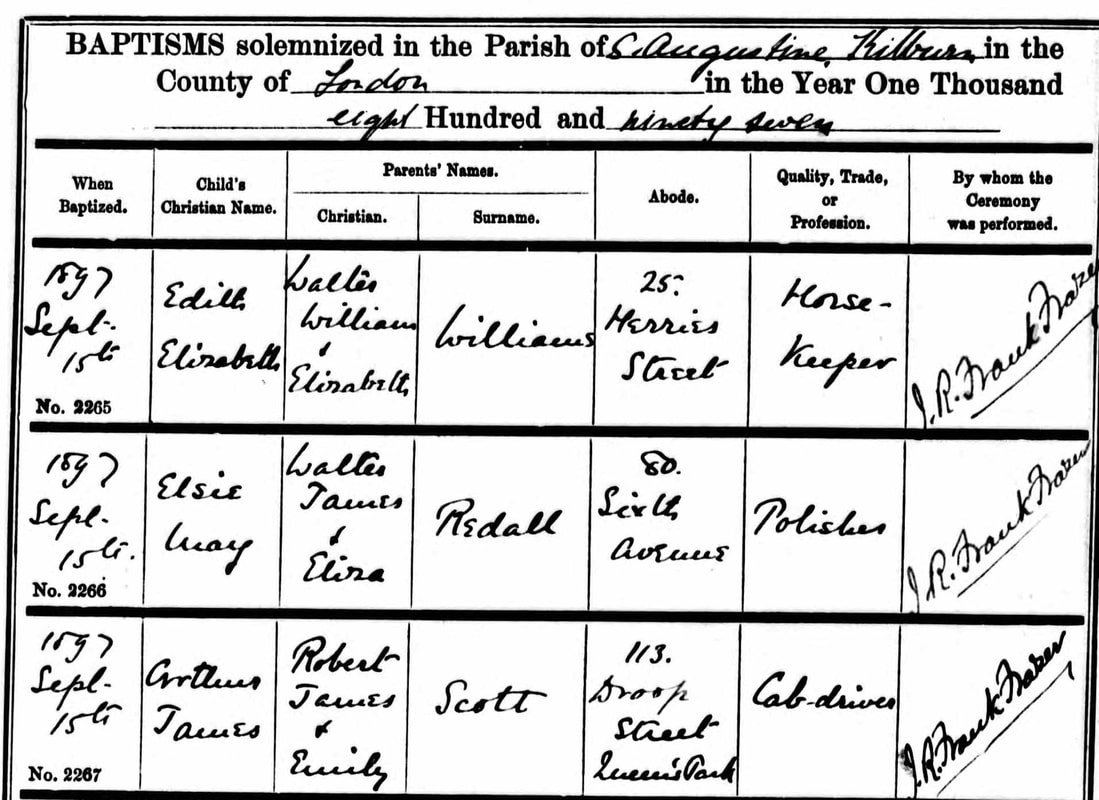 BAPTISMS solemnized in the Parish of S. Augustine Kilburn in the
County of London in the Year One Thousand
eight Hundred and ninety seven
When Baptized.
Child's Christian Name.
Parents' Names.
Christian.
Surname.
Abode.
Quality, Trade, or Profession.
By whom the Ceremony was performed.
1897
Sept.
15th
No. 2265
Edith
Elizabeth
Walter
William
&
Elizabeth
Williams
25.
Herries
Street
Horse-
Keeper
J. R. Frank Frazer
1897
Sept.
15th.
No. 2266
Elsie
May
Walter
James
&
Eliza
Redall
80.
Sixth
Avenue
Polisher
J. R. Frank Frazer
1897
Sept.
15th
No. 2267
Arthur
James
Robert
James
&
Emily
Scott
113.
Droop
Street
Queen's Park
Cab-driver
J. R. Frank Frazer